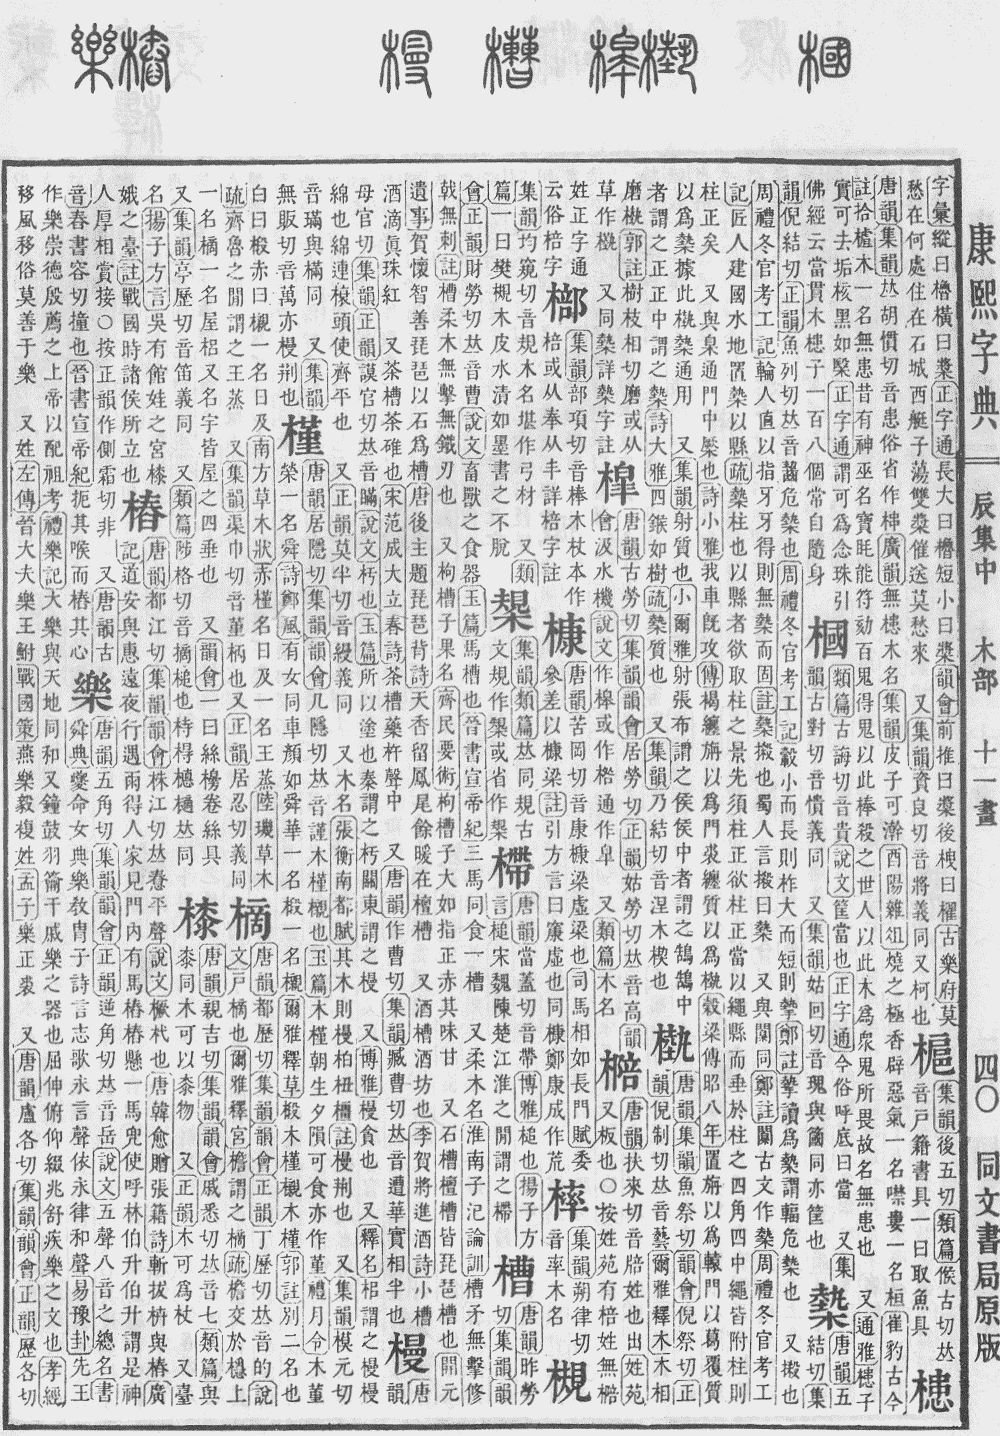 康熙字典 辰集中 木部 十一畫 四〇 同文書局原版
字彙縱曰櫓橫曰槳正字通長大曰櫓短小曰槳韻會前推曰槳後曳曰櫂古樂府莫
愁在何處住在石城西艇子蕩雙槳催送莫愁來 又集韻資良切音將義同又柯也
槴 集韻後五切類篇候古切𠀤
音戸籍書具一曰取魚具
槵
唐韻集韻𠀤胡慣切音患俗省作槵廣韻無槵木名集韻皮子可澣酉陽雜俎燒之極香辟惡氣一名噤婁一名桓崔豹古今
註拾櫨木一名無患昔有神巫名寶眊能符劾百鬼得鬼以此棒殺之世人以此木爲衆鬼所畏故名無患也 又通雅槵子
實可去垢核黑如㱾正字通謂可爲念珠引
佛經云當貫木槵子一百八個常自隨身
槶 類篇古誨切音貴說文筐當也正字通今俗呼底曰當 又集
韻古對切音憒義同 又集韻姑回切音瑰與簂同亦筐也
槷 唐韻五
結切集
韻倪結切正韻魚列切𠀤音齧危槷也周禮冬官考工記轂小而長則柞大而短則摯鄭註摯讀爲槷謂輻危槷也 又橛也
周禮冬官考工記輪人直以指牙牙得則無槷而固註槷樧也蜀人言樧曰槷 又與闑同鄭註闑古文作槷周禮冬官考工
記匠人建國水地置槷以縣疏槷柱也以縣者欲取柱之景先須柱正欲柱正當以繩縣而垂於柱之四角四中繩皆附柱則
柱正矣 又與臬通門中橜也詩小雅我車旣攻傳褐纏旃以爲門裘纏質以爲槸穀梁傳昭八年置旃以爲轅門以葛覆質
以爲槷據此槸槷通用 又集韻射質也小爾雅射張布謂之侯侯中者謂之鵠鵠中
者謂之正正中謂之槷詩大雅四鍭如樹疏槷質也 又集韻乃結切音涅木楔也
槸 唐韻集韻魚祭切韻會倪祭切正
韻倪制切𠀤音藝爾雅釋木木相
磨槸郭註樹枝相切磨或从
草作槸 又同槷詳槷字註
槹 唐韻古勞切集韻韻會居勞切正韻姑勞切𠀤音高韻
會汲水機說文作槔或作橰通作皐 又類篇木名
棓 唐韻扶來切音陪姓也出姓苑
又板也〇按姓苑有棓姓無㮯
姓正字通
云俗棓字
㮄 集韻部項切音棒木杖本作
棓或从奉从丰詳棓字註
槺 唐韻苦岡切音康槺梁虛梁也司馬相如長門賦委
參差以槺梁註引方言曰㝩虛也同槺鄭康成作荒
㯄 集韻朔律切
音率木名
槻
集韻均窺切音規木名堪作弓材 又類
篇一曰樊槻木皮水清如墨書之不脫
槼 集韻類篇𠀤同規古
文規作槼或省作槼
㯂 唐韻當蓋切音帶博雅槌也揚子方
言槌宋魏陳楚江淮之閒謂之㯂
槽 唐韻昨勞
切集韻韻
會正韻財勞切𠀤音曹說文畜獸之食器玉篇馬槽也晉書宣帝紀三馬同食一槽 又柔木名淮南子氾論訓槽矛無擊修
戟無刺註槽柔木無擊無鐵刃也 又枸槽子果名齊民要術枸槽子大如指正赤其味甘 又石槽檀槽皆琵琶槽也開元
遺事賀懷智善琵琶以石爲槽唐後主題琵琶背詩天香留鳳尾餘暖在檀槽 又酒槽酒坊也李賀將進酒詩小槽
酒滴眞珠紅 又茶槽茶碓也宋范成大立春詩茶槽藥杵聲中 又唐韻作曹切集韻臧曹切𠀤音遭華實相半也
槾 唐韻
母官切集韻正韻謨官切𠀤音瞞說文杇也玉篇所以塗也秦謂之杇關東謂之槾 又博雅槾貪也 又釋名梠謂之槾槾
綿也綿連榱頭使齊平也 又正韻莫半切音縵義同 又木名張衡南都賦其木則槾柏杻橿註槾荆也 又集韻模元切
音璊與樠同 又集韻
無販切音萬亦槾荆也
槿 唐韻居隱切集韻韻會几隱切𠀤音謹木槿櫬也玉篇木槿朝生夕隕可食亦作菫禮月令木菫
榮一名舜詩鄭風有女同車顏如舜華一名椵一名櫬爾雅釋草椵木槿櫬木槿郭註別二名也
白曰椵赤曰櫬一名日及南方草木狀赤槿名日及一名王蒸陸璣草木
疏齊魯之閒謂之王蒸 又集韻渠巾切音菫柄也又正韻居忍切義同
樀 唐韻都歷切集韻韻會正韻丁歷切𠀤音的說
文戸樀也爾雅釋宮檐謂之樀疏檐交於穩上
一名樀一名屋梠又名宇皆屋之四垂也 又韻會一曰絲樀卷絲具
又集韻亭歷切音笛義同 又類篇陟格切音摘槌也㭙得樀樋𠀤同
㯃 唐韻親吉切集韻韻會戚悉切𠀤音七類篇與
桼同木可以㯃物 又正韻木可爲杖 又臺
名揚子方言吳有館娃之宮㯃
娥之臺註戰國時諸侯所立也
樁 唐韻都江切集韻韻會株江切𠀤惷平聲說文橛杙也唐韓愈贈張籍詩斬拔枿與樁廣
記道安與惠遠夜行遇雨得人家見門內有馬樁樁懸一馬兜使呼林伯升伯升謂是神
人厚相賞接〇按正韻作側霜切非 又唐韻古
音春書容切撞也晉書宣帝紀扼其喉而樁其心
樂 唐韻五角切集韻韻會正韻逆角切𠀤音岳說文五聲八音之總名書
舜典夔命女典樂敎冑子詩言志歌永言聲依永律和聲易豫卦先王
作樂崇德殷薦之上帝以配祖考禮樂記大樂與天地同和又鐘鼓羽籥干戚樂之器也屈伸俯仰綴兆舒疾樂之文也孝經
移風移俗莫善于樂 又姓左傳晉大夫樂王鮒戰國策燕樂毅複姓孟子樂正裘 又唐韻盧各切集韻韻會正韻歷各切